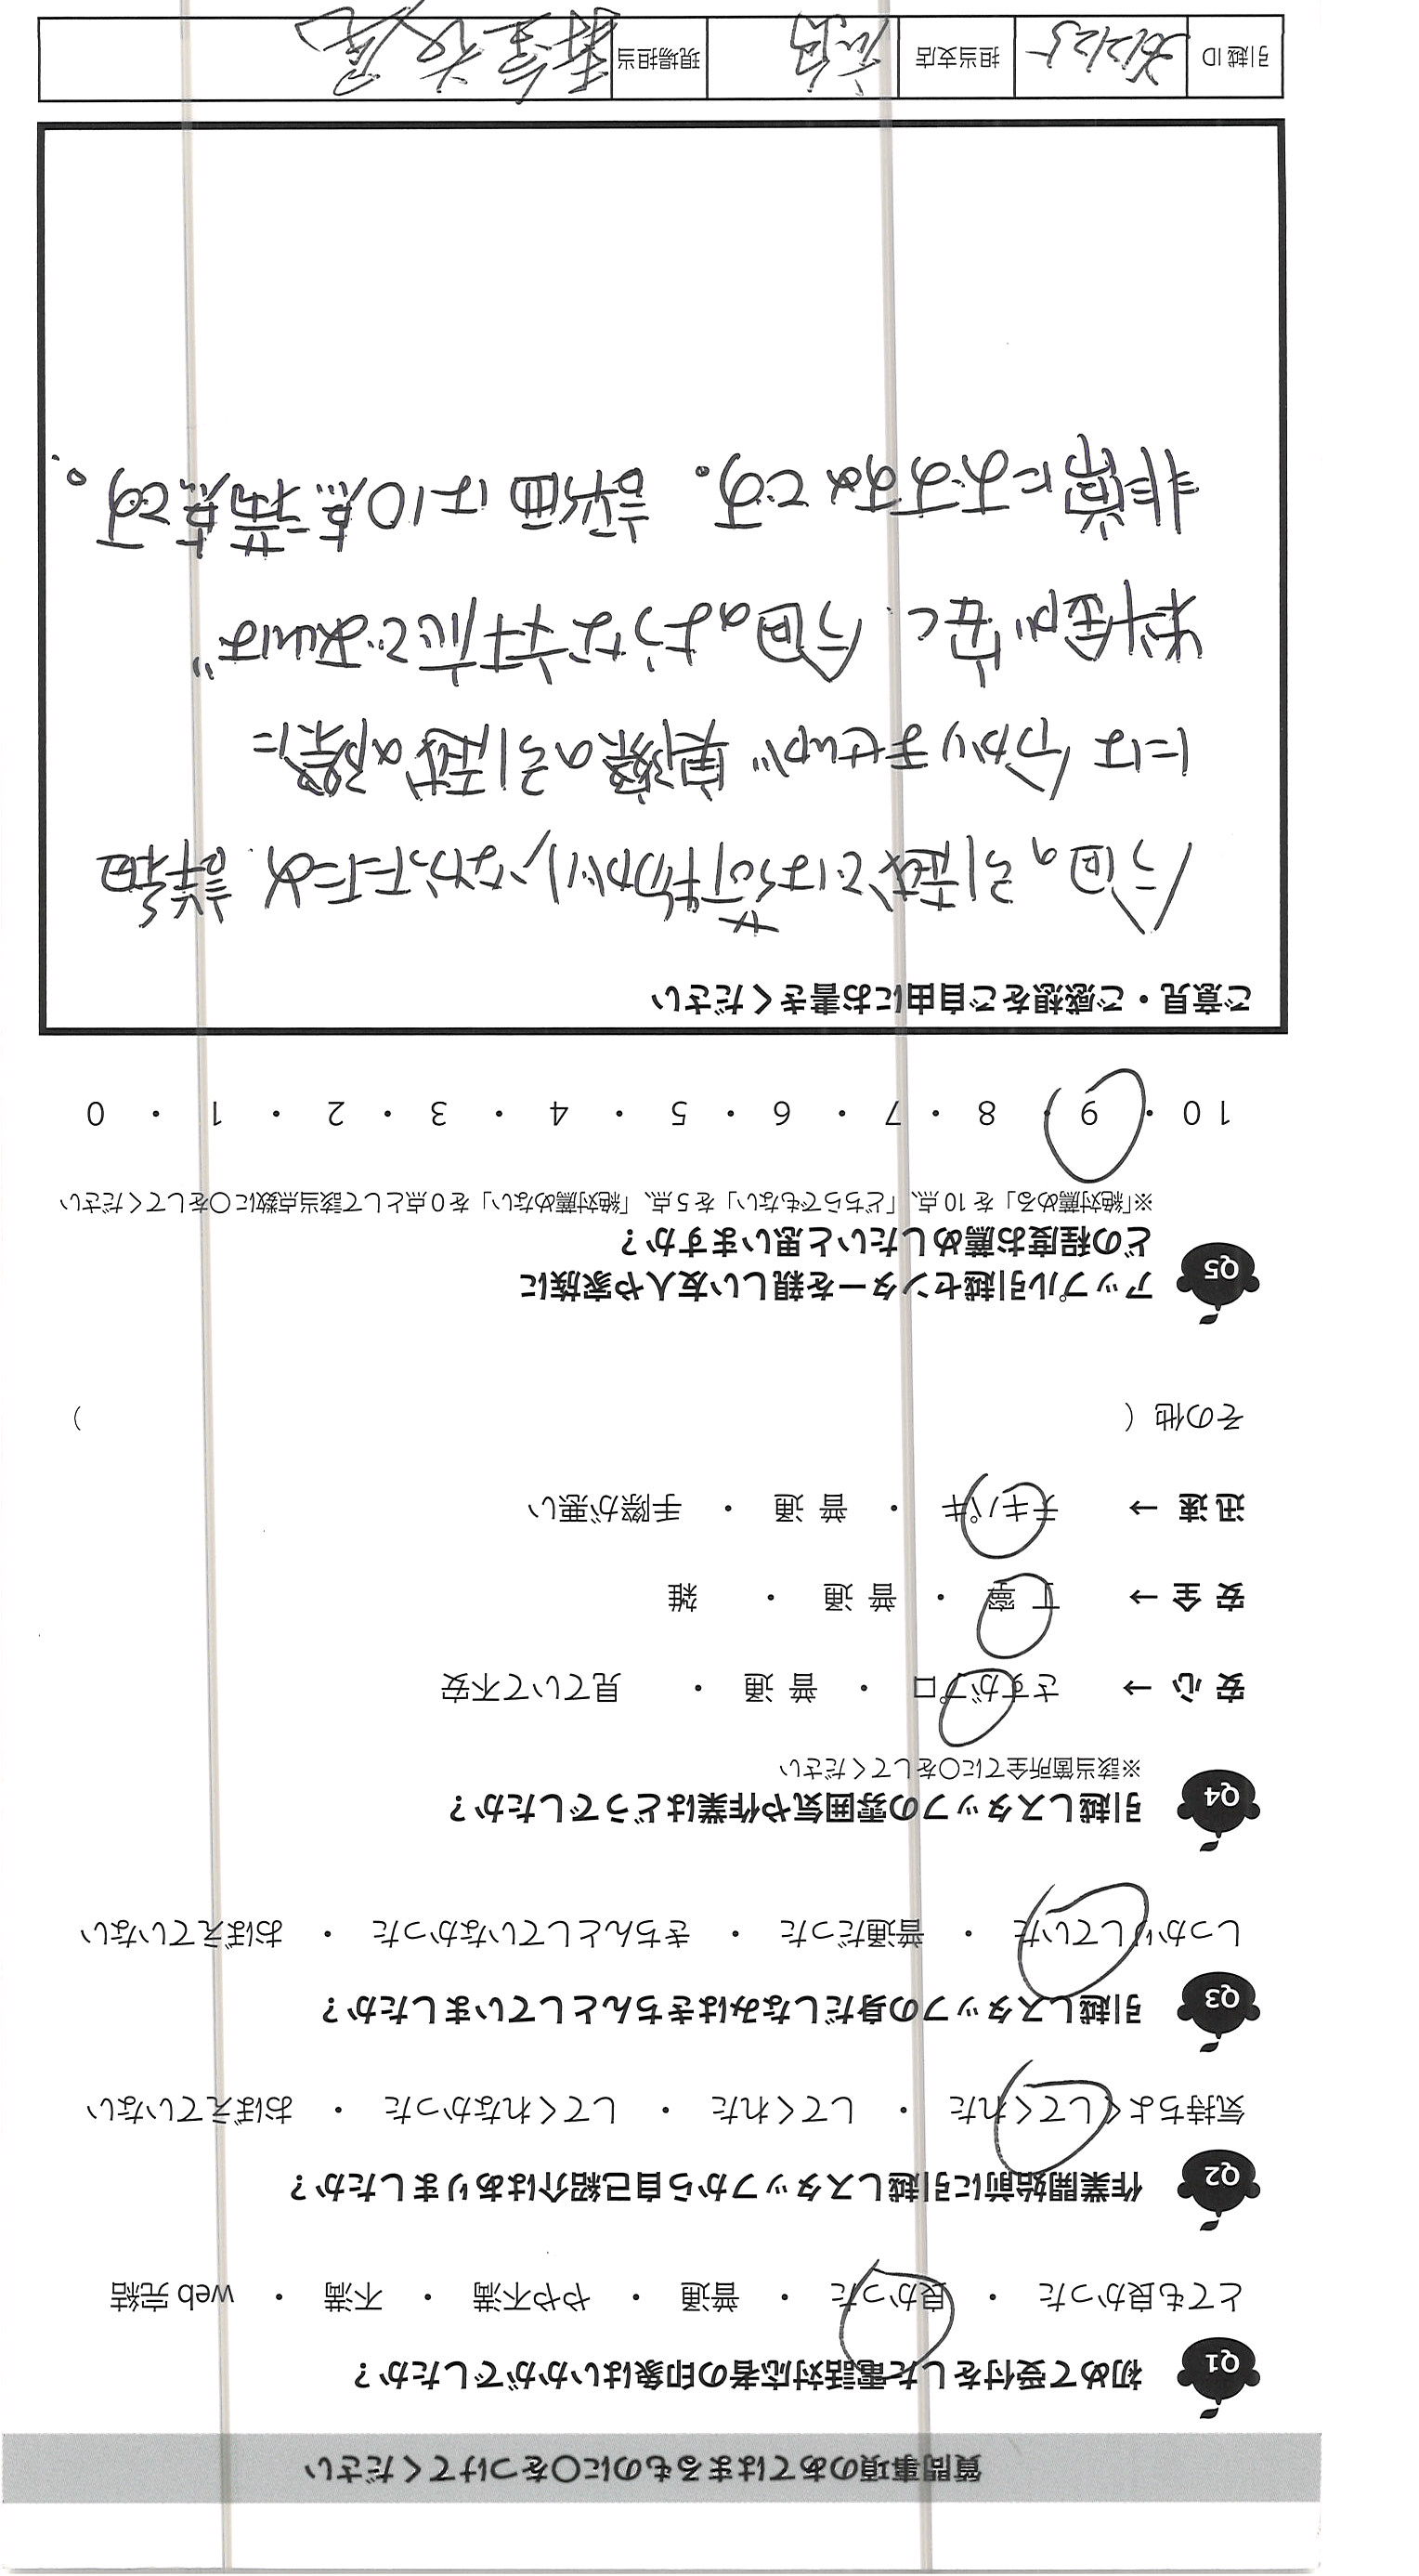 質問事項のあてはまるものに○をつけてください
Q1 初めて受付をした電話対応者の印象はいかがでしたか？
とても良かった ・ 良かった ・ 普通 ・ やや不満 ・ 不満 ・ web 完結
Q2 作業開始前に引越しスタッフから自己紹介はありましたか？
気持ちよくしてくれた ・ してくれた ・ してくれなかった ・ おぼえていない
Q3 引越しスタッフの身だしなみはきちんとしていましたか？
しっかりしていた ・ 普通だった ・ きちんとしていなかった ・ おぼえていない
Q4 引越しスタッフの雰囲気や作業はどうでしたか？
※該当箇所全てに○をしてください
安 心 → さすがプロ ・ 普 通 ・ 見ていて不安
安 全 → 丁 寧 ・ 普 通 ・ 雑
迅 速 → テキパキ ・ 普 通 ・ 手際が悪い
その他（ ）
Q5 アップル引越センターを親しい友人や家族に
どの程度お薦めしたいと思いますか？
※「絶対薦める」を 10 点、「どちらでもない」を 5 点、「絶対薦めない」を 0 点として該当点数に○をしてください
10 ・ 9 ・ 8 ・ 7 ・ 6 ・ 5 ・ 4 ・ 3 ・ 2 ・ 1 ・ 0
ご意見・ご感想をご自由にお書きください
今回の引越では荷物が少なかったため、詳細
には分かりませんが 実際の引越の際に
料金が安く、今回のような対応であれば
非常におすすめです。評価は10点満点です。
引越 ID 担当支店 現場担当